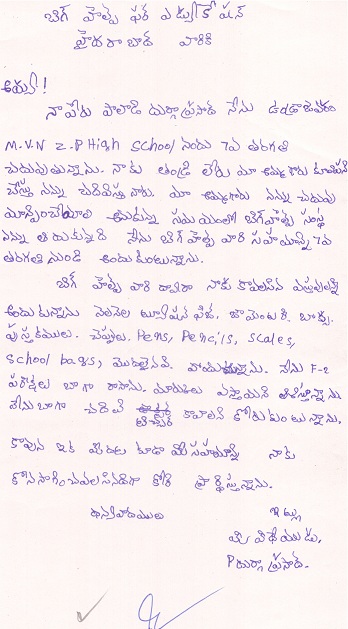 బిగ్ హెల్ప్ ఫర్ ఎడ్యుకేషన్
హైదరాబాద్ వారికి
ఆర్యా!
నా పేరు పాలాది దుర్గాప్రసాద్ నేను ఉండ్రాజవరం
M.V.N Z.P High School నందు 7వ తరగతి
చదువుతున్నాను. నాకు తండ్రి లేరు మా అమ్మగారు కూలిపని
చేస్తూ నన్ను చదివిస్తున్నారు. మా అమ్మగారు నన్ను చదువు
మాన్పించేయాలి అనుకున్న సమయంలో బిగ్ హెల్ప్ సంస్థ
నన్ను ఆదుకున్నది నేను బిగ్ హెల్ప్ వారి సహాయాన్ని 7వ
తరగతి నుండి అందుకుంటున్నాను.
బిగ్ హెల్ప్ వారి ద్వారా నాకు కావలసిన వస్తువులన్నీ
అందుకున్నాను నెలనెల ట్యూషన్ ఫీజు. జామెంటరీ. బాక్సు.
పుస్తకములు. చెప్పులు. Pens, Pencils, scales,
school bags, మొదలైనవి. పొందుతున్నాను. నేను F-2
పరీక్షలు బాగా రాసాను. మార్కులు వస్తాయని ఆశిస్తున్నాను
నేను బాగా చదివి టీచర్ కావాలని కోరుకుంటున్నాను.
కావున ఇక మీదట కూడా మీ సహాయాన్ని నాకు
కొనసాగించవలసినదిగా కోరి ప్రార్థిస్తున్నాను.
ధన్యవాదములు ఇట్లు
మీ విధేయుడు.
P దుర్గా ప్రసాద్.